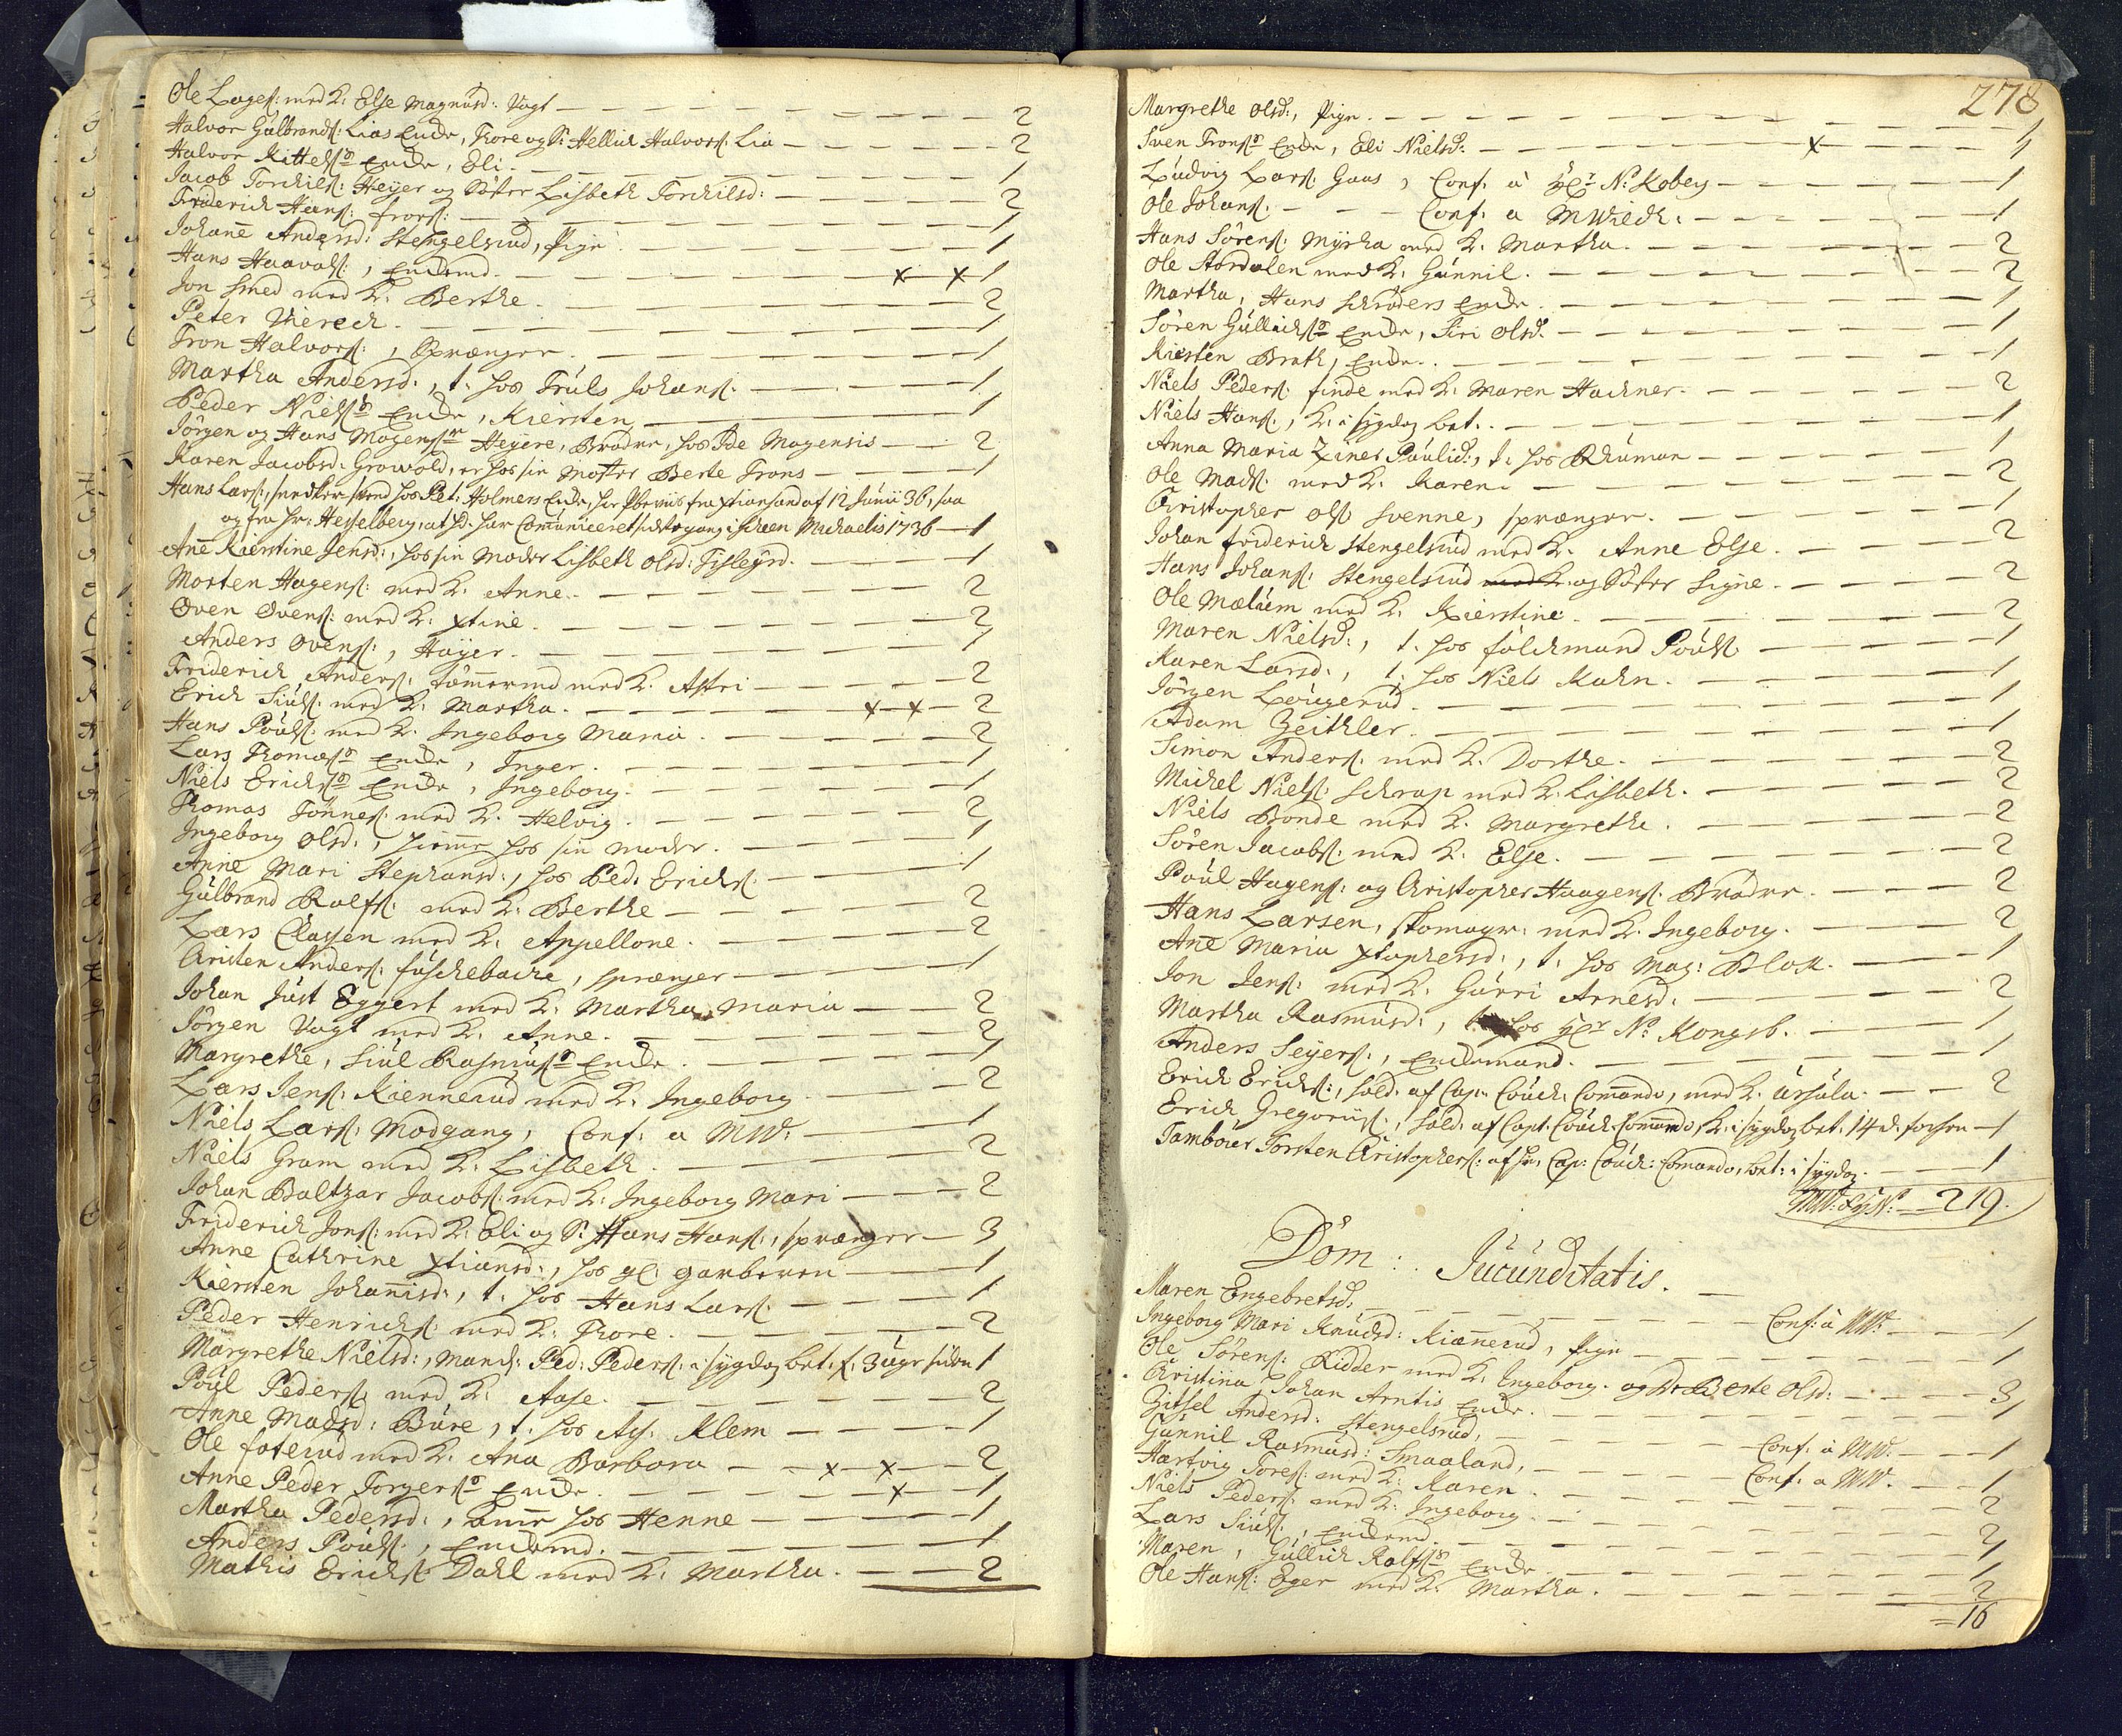 Ole Lages: med K: Else Magnusd: Vogt — 2
Halvor Gulbrands: Lias Encke, Thore og S: Hellich Halvors: Lia — 2
Halvor Kittels: Encke, Eli — 1
Jacob Torchils: Heyer og Søster Lisbeth Torchilsd: — 2
Friderich Hans: — 1
Johanne Andersd: Stengelsrud, Pige — 1
Hans Haavols:, Enckemd. — x x 1
Jon Smed med K: Berthe — 2
Peter Viereck — 1
Tron Halvors:, Sprænger — 1
Martha Andersd:, t. hos Truls Johans: — 1
Peder Niels: Encke, Kiersten — 1
Jørgen og Hans Mogens: Heyere, Brødre, hos Ide Mogensis — 2
Karen Jacobsd: Growold, er hos sin Moster Berte Trons — 1
Hans Lars:, Snedker svend hos Pet: Holmers Encke, har beviis fra Xtiansand af 12 Junii 36, saa
og fra Hr: Hesselberg, at hd. har Comuniceret sidste gang i Scheen Michaelis 1736 — 1
Ane Kierstine Jensd:, hos sin Moder Lisbeth Olsd: Fisleyrd. — 1
Morten Hagens: med K: Anne — 2
Oven Ovens: med K: Xtine — 2
Anders Ovens:, Høyer — 1
Friderich Anders: Tømermd med K: Astri — 2
Erich Siuls: med K: Martha — x x 2
Hans Pouls: med K: Ingeborg Maria — 2
Lars Thomæs: Encke, Inger — 1
Niels Erichs: Encke, Ingeborg — 1
Thomas Tønnes: med K: Helvig — 2
Ingeborg Olsd:, hiemme hos sin moder — 1
Anne Mari Stephansd:, hos Ped: Erichs: — 1
Gulbrand Rolfs: med K: Berthe — 2
Lars Classen med K: Appellone — 2
Christen Anders: Fuschebache, sprænger — 1
Johan Just Eggert med K: Martha Maria — 2
Jørgen Vogt med K: Anne — 2
Margrethe, Siul Rasmus: Encke — 1
Lars Jens: Kiennerud med K: Ingeborg — 2
Niels Lars: Modgang, Conf: a MW: — 1
Niels Gram med K: Lisbeth — 2
Johan Baltzar Jacobs: med K: Ingeborg Mari — 2
Friderich Jons: med K: Eli og S: Hans Hans:, sprænger — 3
Anne Cathrine Xtiansd:, hos gl: garberen — 1
Kiersten Johanisd:, t. hos Hans Lars: — 1
Peder Henrichs: med K: Thore — 2
Margrethe Nielsd:, Mand: Ped: Peders: i sygdom bet. f. 3 uger siden 1
Poul Peders: med K: Aase — 2
Anne Madsd: Bure, t. hos Ass: Klem — 1
Ole foterud med K: Ana Barbara — x x 2
Anne Peder Torgers: Encke — x 1
Martha Pedersd:, Ame hos Henne — 1
Anders Pouls:, Enckemd. — 1
Mathis Erichs: Dahl med K: Martha — 2
278
Margrethe Olsd:, Pige — 1
Sven Trons: Encke, Eli Nielsd: — x 1
Ludvig Lars: Gaas, Conf: a Hr N: Kobey — 1
Ole Johans: — Conf: a MWiech: — 1
Hans Sørens: Myrha med K: Martha — 2
Ole Stordalen med K: Gunnil — 2
Martha, Hans Schrøders Encke — 1
Søren Gullichs: Encke, Siri Olsd. — 1
Kiersten Brath, Encke — 1
Niels Peders: finde med K: Maren Hackner — 2
Niels Hans:, K: i sygdom bet. — 1
Anna Maria Ziner Paulid:, t. hos Rhuman — 1
Ole Mads: med K: Karen — 2
Christopher Ols: Svenne, sprænger — 1
Johan friderich Stengelsrud med K: Anne Else — 2
Hans Johans: Stengelsrud med K: og Søster Signe — 2
Ole Mælum med K: Kierstine — 2
Maren Nielsd:, t. hos Folckmand Pouls: — 1
Karen Larsd:, t. hos Niels Kahn — 1
Jørgen Lougerud — 1
Adam Zeithler — 1
Simon Anders: med K: Dorthe — 2
Michel Niels: Schrap med K: Lisbeth — 2
Niels Bonde med K: Margrethe — 2
Søren Jacobs: med K: Else — 2
Poul Hagens: og Christopher Haagens: Brødre — 2
Hans Larsen, skomager: med K: Ingeborg — 2
Ane Maria Xtophersd:, t. hos Mag: Blok — 1
Jon Jens: med K: Gurri Arnesd: — 2
Martha Rasmusd:, hos Hr N: Kongsb. — 1
Anders Seyers:, Enckemand — 1
Erich Erichs:, Sold. af Cap: Couch: Comando, med K: Ursula — 2
Erich Gregorius:, Sold: af Capt: Couch: Comando, K: i sygdom bet: 14 d. forhen — 1
Tambour Torsten Christophers: af Hr Cap: Couch: Comando, bet: i sygdom — 1
MW: — 219.
Dom: Jucunditatis.
Maren Engebretsd: — Conf: a MW: — 1
Ingeborg Mari Knudsd: Kiennerud, Pige — 1
Ole Sørens: Ridder med K: Ingeborg og Dr Berte Olsd: — 3
Christina, Johan Arntis Encke — 1
Zitsel Andersd: Stengelsrud, — Conf: a MW: — 1
Gunnil Rasmusd: Smaaland, — Conf: a MW. — 1
Hartvig Tores: med K: Karen — 2
Niels Peders: med K: Ingeborg — 2
Lars Siuls:, Enckemd. — 1
Maren, Gullich Rolfs: Encke — 1
Ole Hans: Eger med K: Martha — 2
= 16